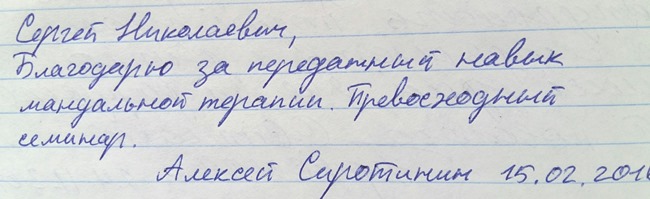 Сергей Николаевич,
Благодарю за переданный навык
мандальной терапии. Превосходный
семинар.
Алексей Сиротинин 15.02.201